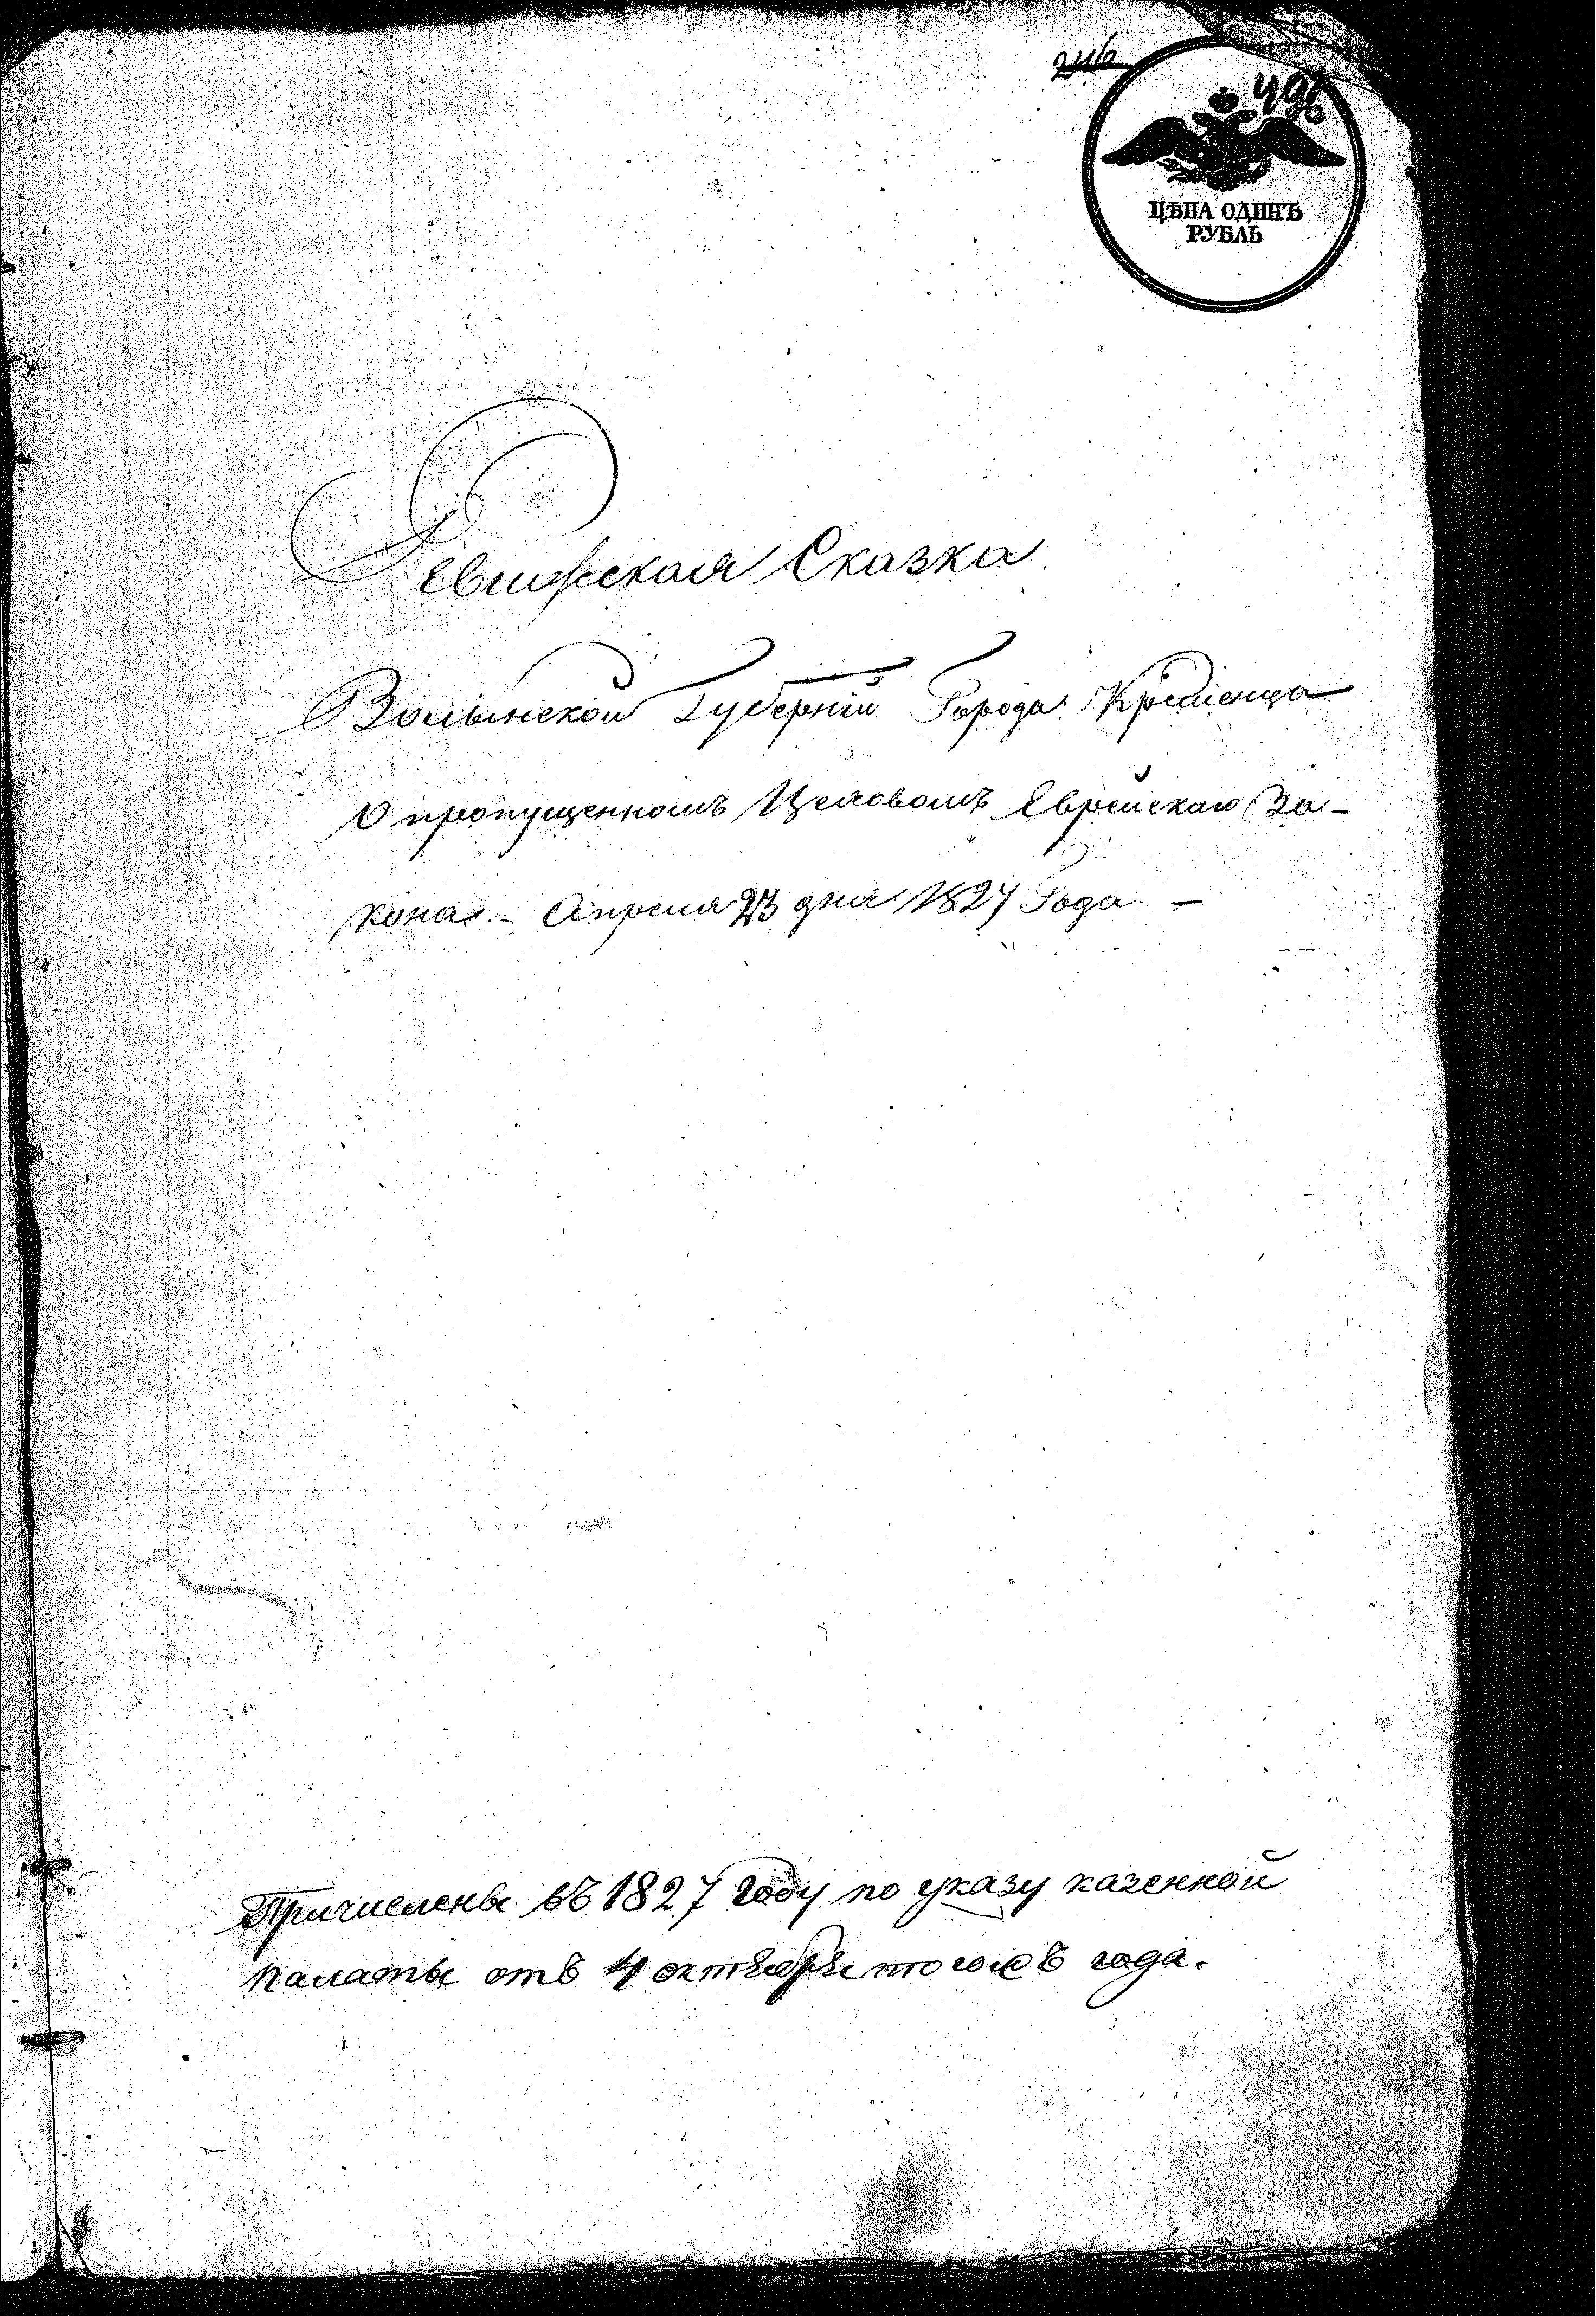 246
496
ЦѢНА ОДИНЪ
РУБЛЬ
Ревижская Сказка
Волынской Губерніи Города Кременца
О пропущенномъ Целовомъ Еврейскаго За-
кона. - Апреля 23 дня 1827 Года. -
Причислены въ 1827 году по указу казенной
палаты отъ 4 октября тогожъ года.